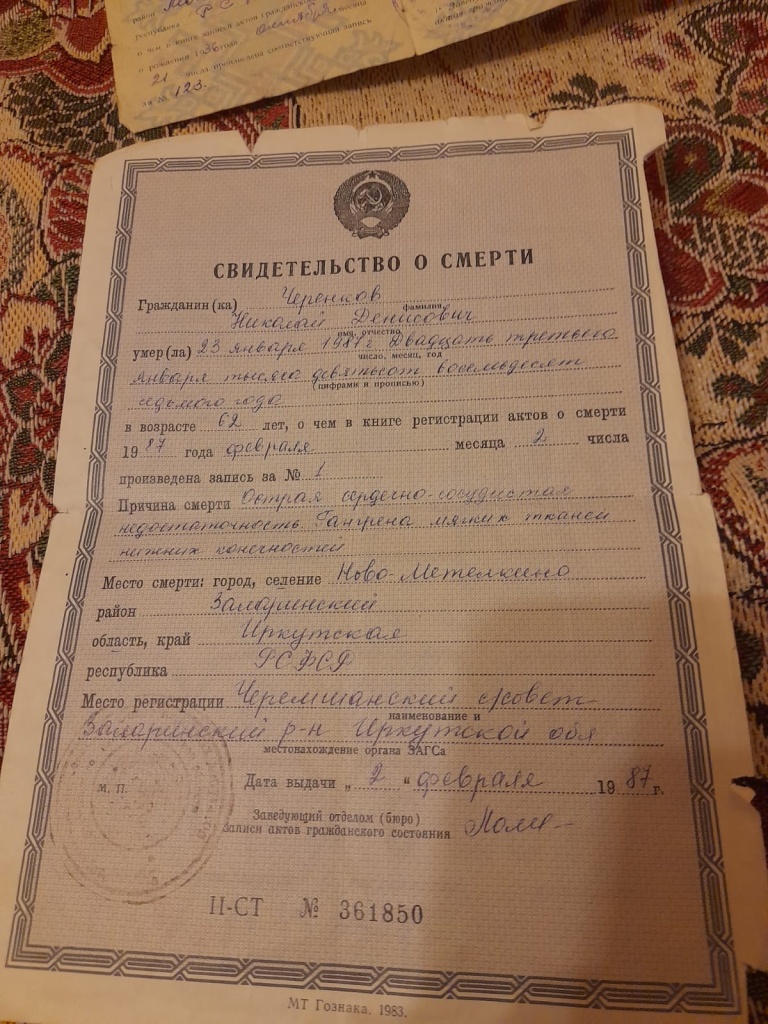 район
республика РС
о чем в книге записи актов гражданского
о рождении 1936 года Октября месяца
21 числа произведена соответствующая запись
за № 123.
СВИДЕТЕЛЬСТВО О СМЕРТИ
Гражданин(ка) Черенков
фамилия,
Николай Денисович
имя, отчество
умер(ла) 23 января 1987г Двадцать третьего
число, месяц, год
января тысяча девятьсот восемьдесят
(цифрами и прописью)
седьмого года
в возрасте 62 лет, о чем в книге регистрации актов о смерти
1987 года февраля месяца 2 числа
произведена запись за № 1
Причина смерти Острая сердечно-сосудистая
недостаточность. Гангрена мягких тканей
нижних конечностей
Место смерти: город, селение Ново-Метелкино
район Заларинский
область, край Иркутская
республика РСФСР
Место регистрации Черемшанский с/совет
наименование и
Заларинский р-н Иркутской обл
местонахождение органа ЗАГСа
М. П.
Дата выдачи „ 2 “ февраля 1987 г.
Заведующий отделом (бюро)
записи актов гражданского состояния
II-СТ № 361850
МТ Гознака. 1983.